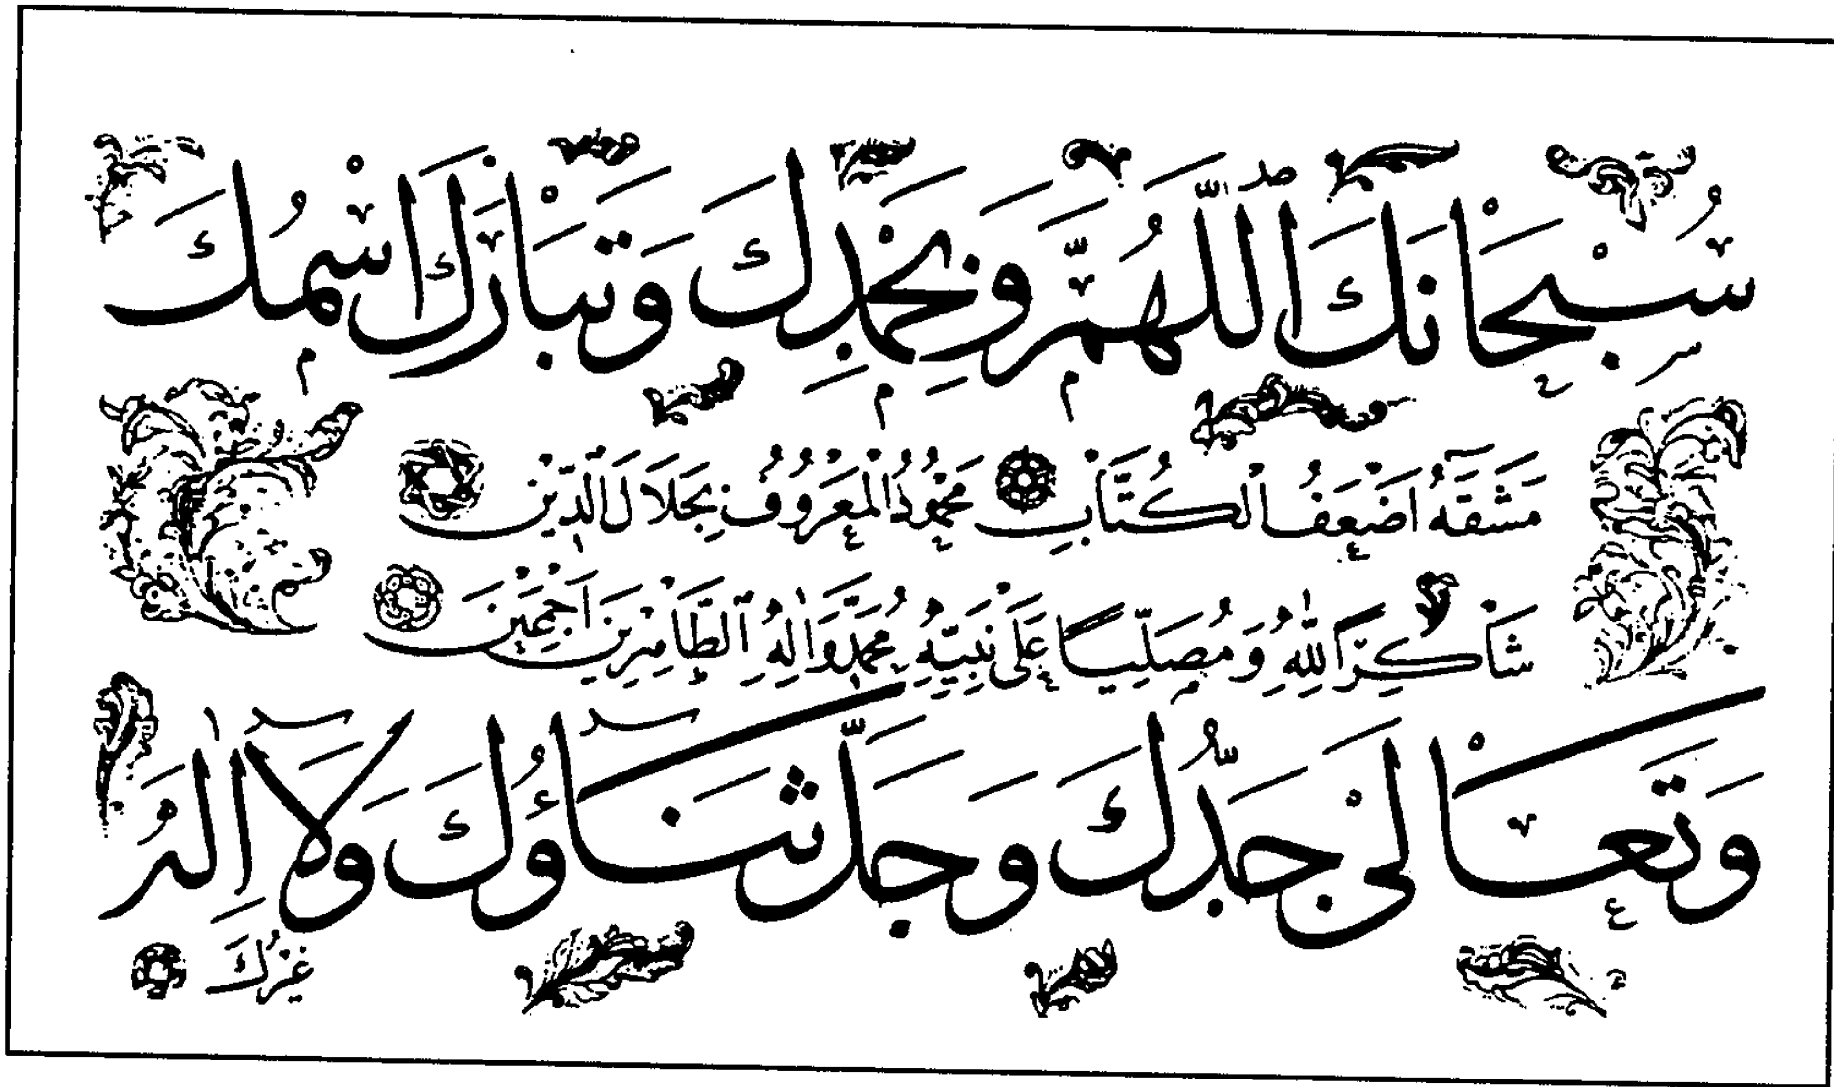 سُبْحَانَكَ اللّٰهُمَّ وَبِحَمْدِكَ وَتَبَارَكَ اسْمُكَ
مَشَقَهُ اَضْعَفُ الْكُتَّابِ مَحْمُودُ الْمَعْرُوفُ بِجَلَالَ الدِّينِ
شَاكِرًا لِلّٰهِ وَمُصَلِّيًا عَلٰى نَبِيِّهِ مُحَمَّدٍ وَاٰلِهِ الطَّاهِرِينَ اَجْمَعِينَ
وَتَعَالٰى جَدُّكَ وَجَلَّ ثَنَاؤُكَ وَلَا اِلٰهَ
غَيْرُكَ